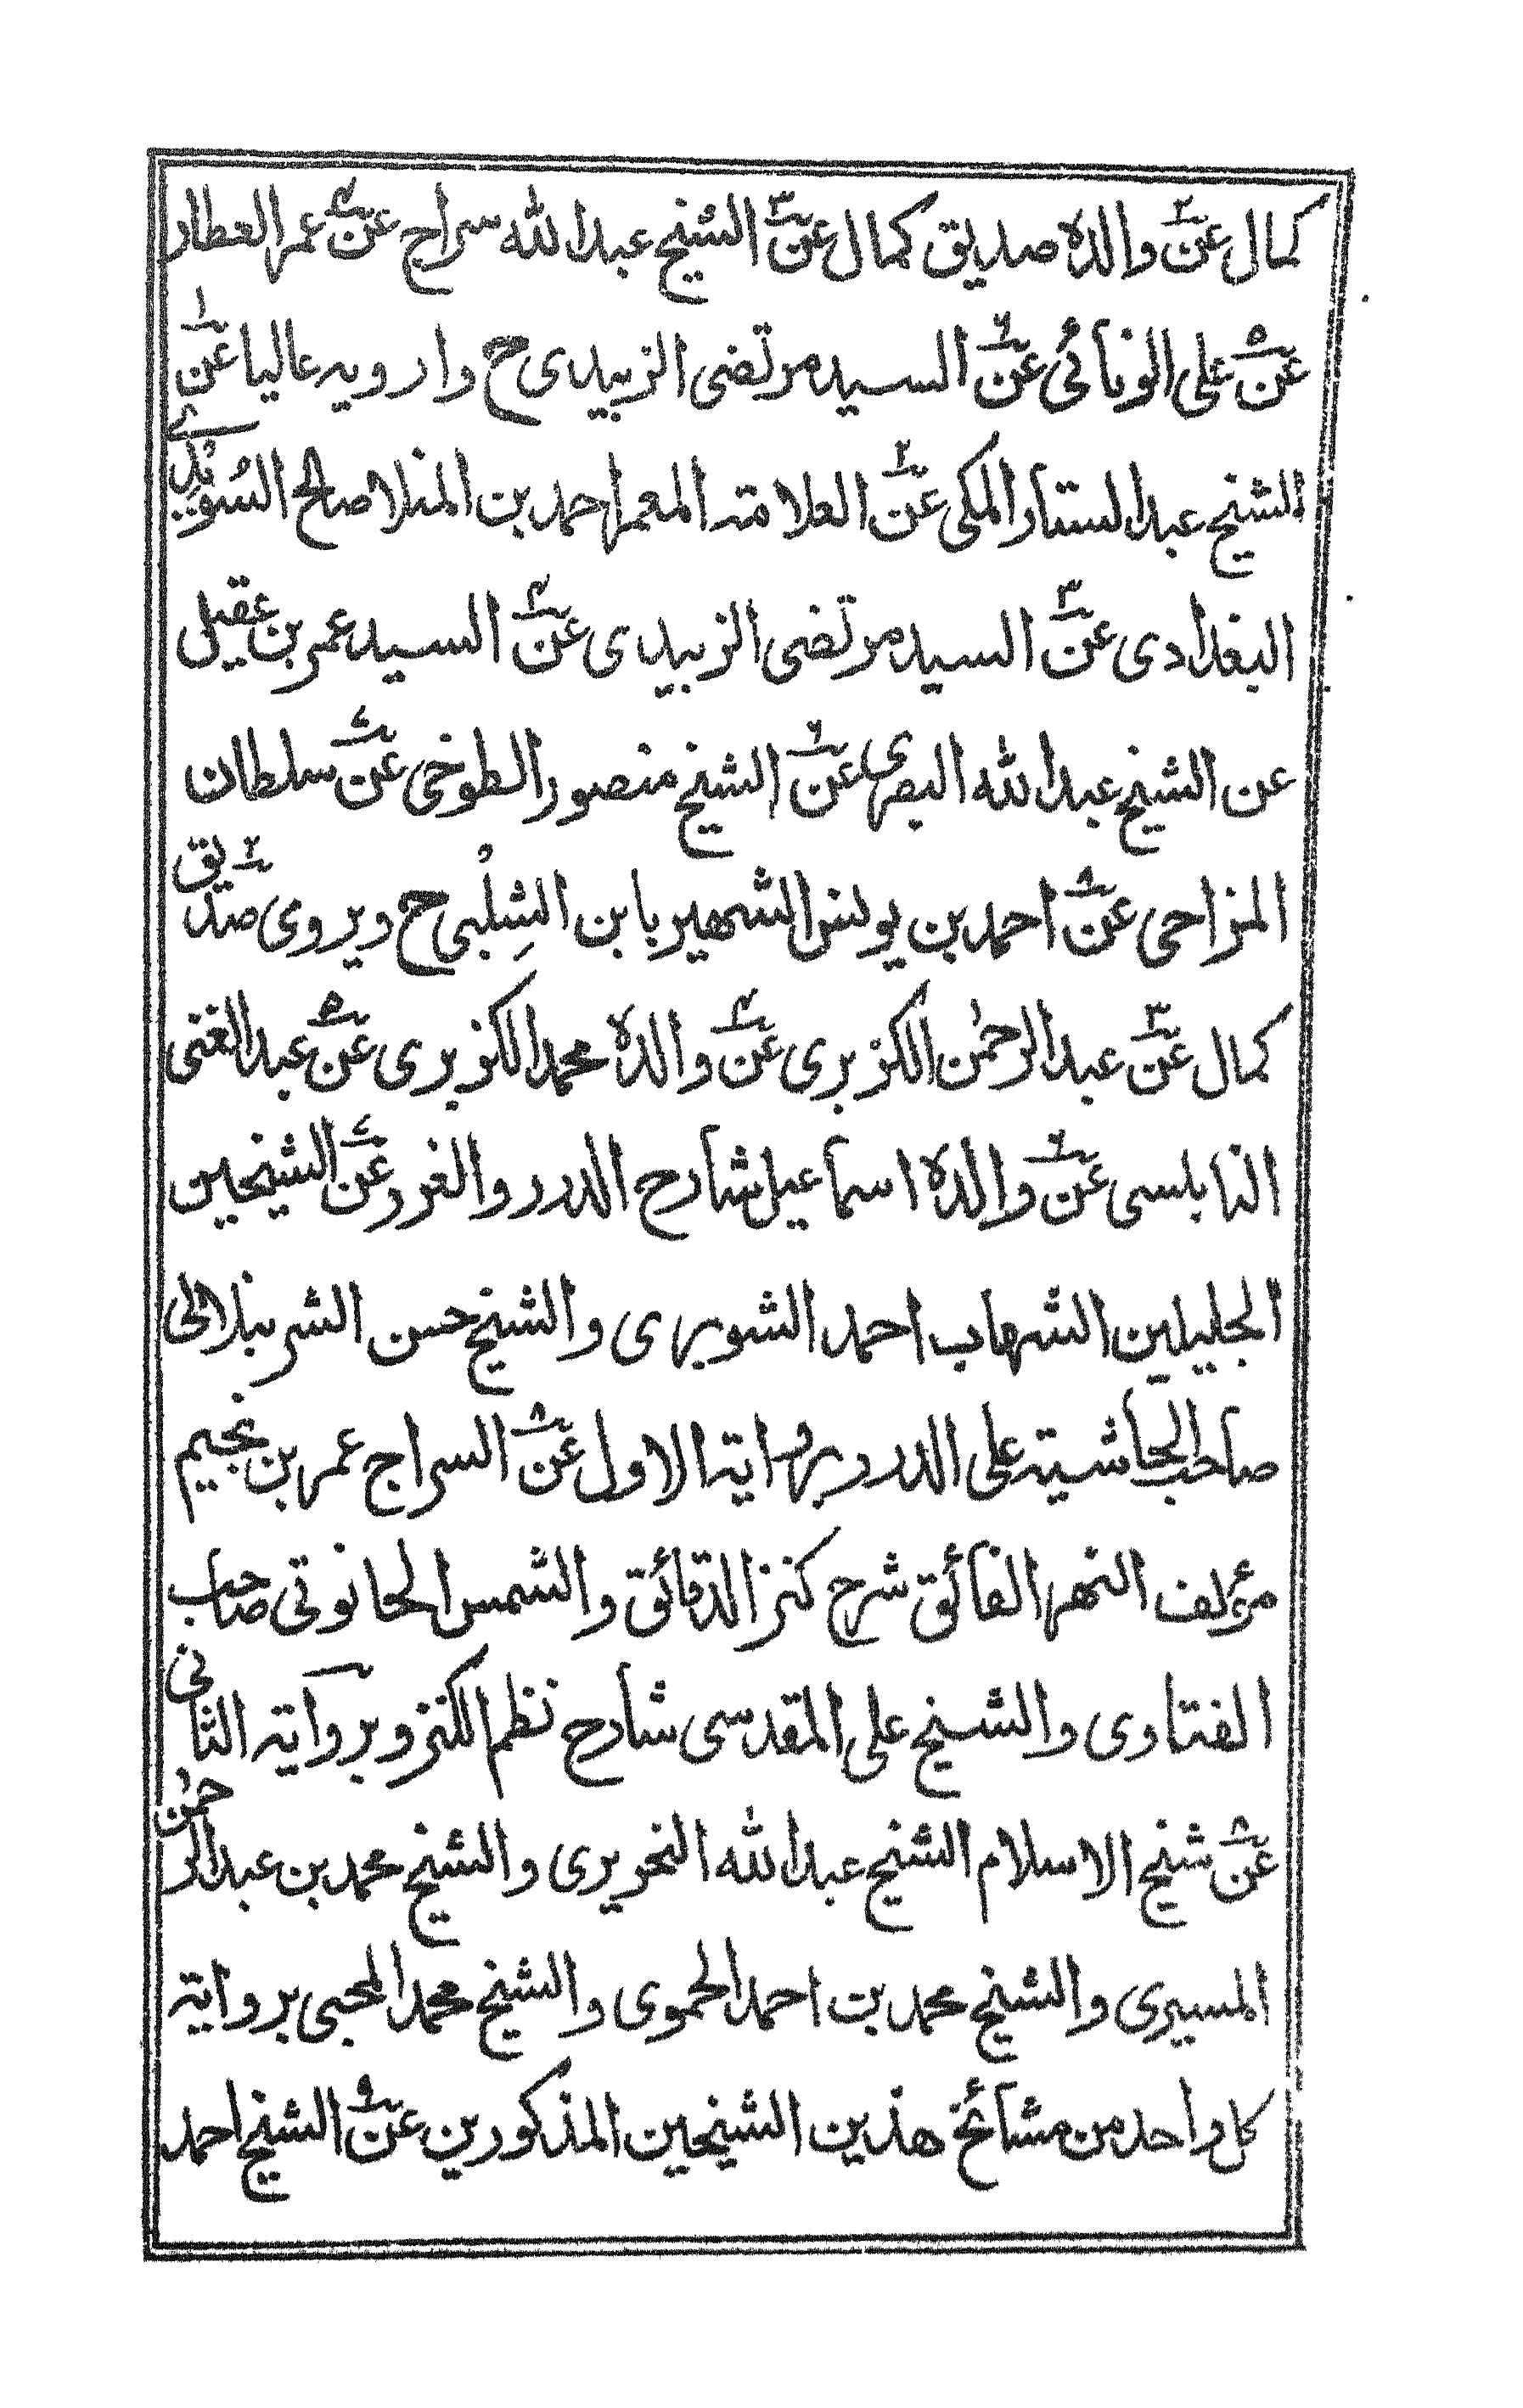 كمال عن٢ والده صديق كمال عن٣ الشيخ عبدالله سراج عن٤ عمر العطار
عن٥ علی الونائی عن٦ السيد مرتضی الزبيدی ح وارويه عاليا عن١
الشيخ عبدالستار المكی عن٢ العلامة المعمر احمد بن المنلا صالح السُويدی
البغدادی عن٣ السيد مرتضی الزبيدی عن٤ السيد عمر بن عقيل
عن الشيخ عبدالله البصری عن٦ الشيخ منصور الطوخی عن٧ سلطان
المزاحی عن٨ احمد بن يونس الشهير بابن الشِلْبی ح ويروی صديق٢
كمال عن٣ عبدالرحمٰن الكزبری عن٤ والده محمد الكزبری عن٥ عبدالغنی
النابلسی عن٦ والده اسماعيل شارح الدرر والغرر عن٧ الشيخين
الجليلين الشهاب احمد الشوبری والشيخ حسن الشرنبلالی
صاحب الحاشية علی الدرر برواية الاول عن٨ السراج عمر بن نجيم
مؤلف النهر الفائق شرح كنز الدقائق والشمس الحانوتی صاحب
الفتاوی والشيخ علی المقدسی شارح نظم الكنز وبرواية الثانی
عن٨ شيخ الاسلام الشيخ عبدالله النحريری والشيخ محمد بن عبدالرحمٰن
المسيری والشيخ محمد بن احمد الحموی والشيخ محمد المحبی برواية
كل واحد من مشائخ هذين الشيخين المذكورين عن٩ الشيخ احمد